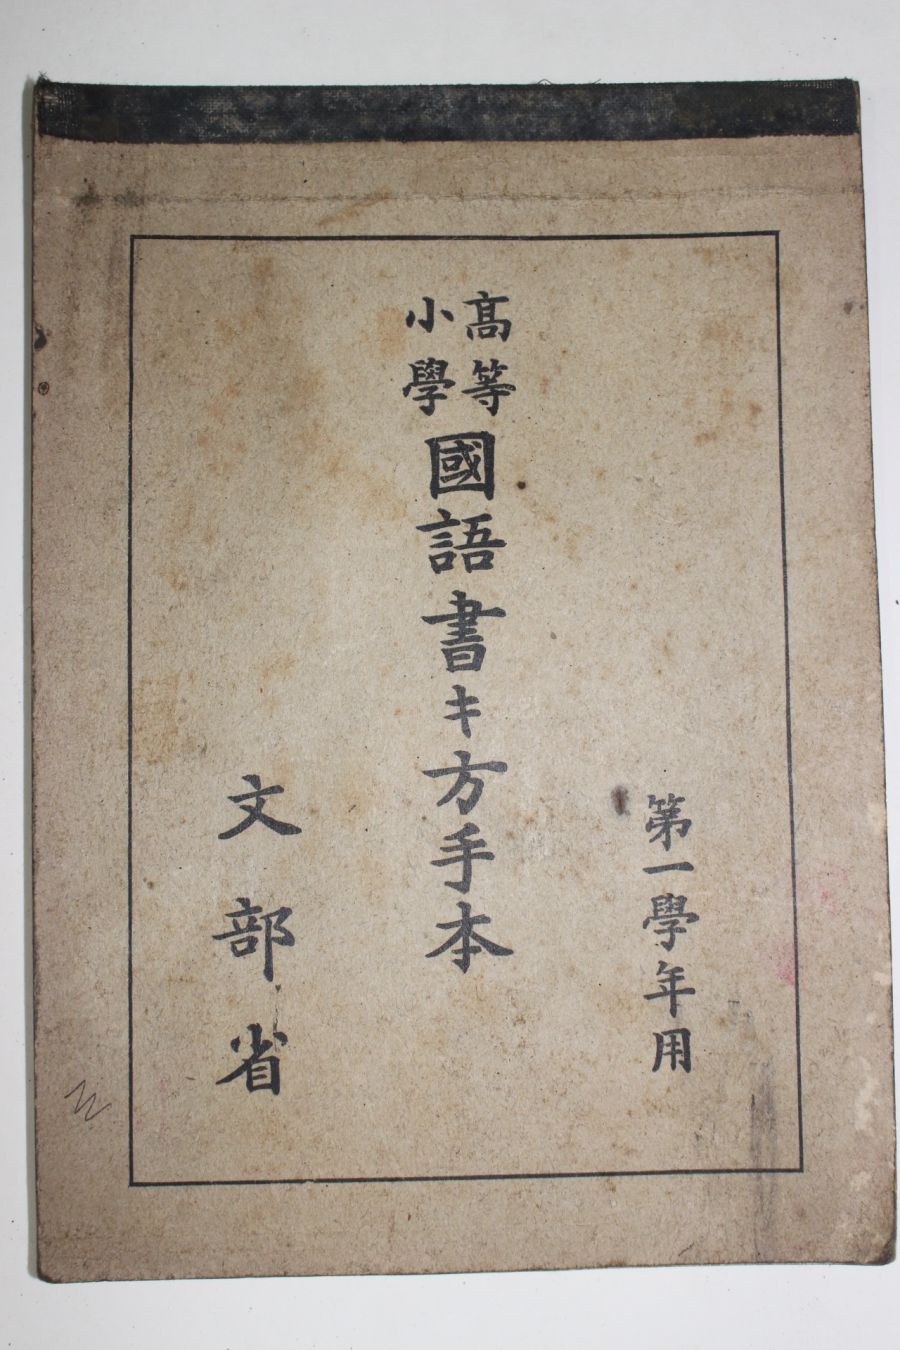 第一學年用
高等
小學
國語書キ方手本
文部省